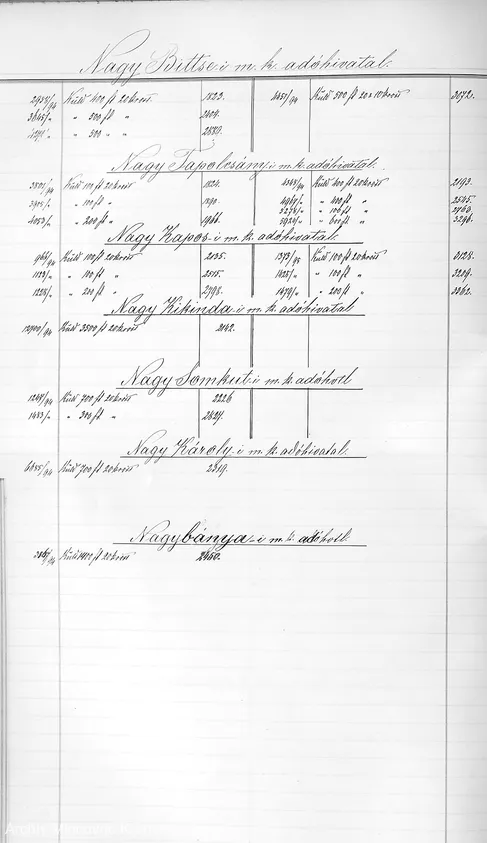 Nagy Bittse-i m. k. adóhivatal.
Küld 400 ft 20 kros 1823. 6451/94 Küld 500 ft 20 s 10 kros 3072.
3645/" " 500 ft " 2404.
" 500 " "
Nagy Tapolcsány-i m. k. adóhivatal.
Küld 100 ft 20 kros 1824. Küld 400 ft 20 kros 2193.
" 100 ft " 1890. " 400 ft " 2545.
" 100 ft " 2760.
4053/" " 200 ft " " 600 ft " 3296.
Nagy Kapos-i m. k. adóhivatal.
966/94 Küld 100 ft 20 kros 2135. 1373/94 Küld 100 ft 20 kros 3128.
" 100 ft " 2515. 1625/" " 100 ft " 3209.
1228/" " 200 ft " 2798. 1679/" " 200 ft " 3362.
Nagy Kikinda-i m. k. adóhivatal
12900/94 Küld 3500 ft 20 kros 2142.
Nagy Somkut-i m. k. adóhvtl
1247/94 Küld 700 ft 20 kros 2226
1453/" " 300 ft " 2627.
Nagy Károly-i m. k. adóhivatal.
6655/94 Küld 700 ft 20 kros 2319.
Nagybánya-i m. k. adóhvtl
Küld 1400 ft 20 kros 2460.